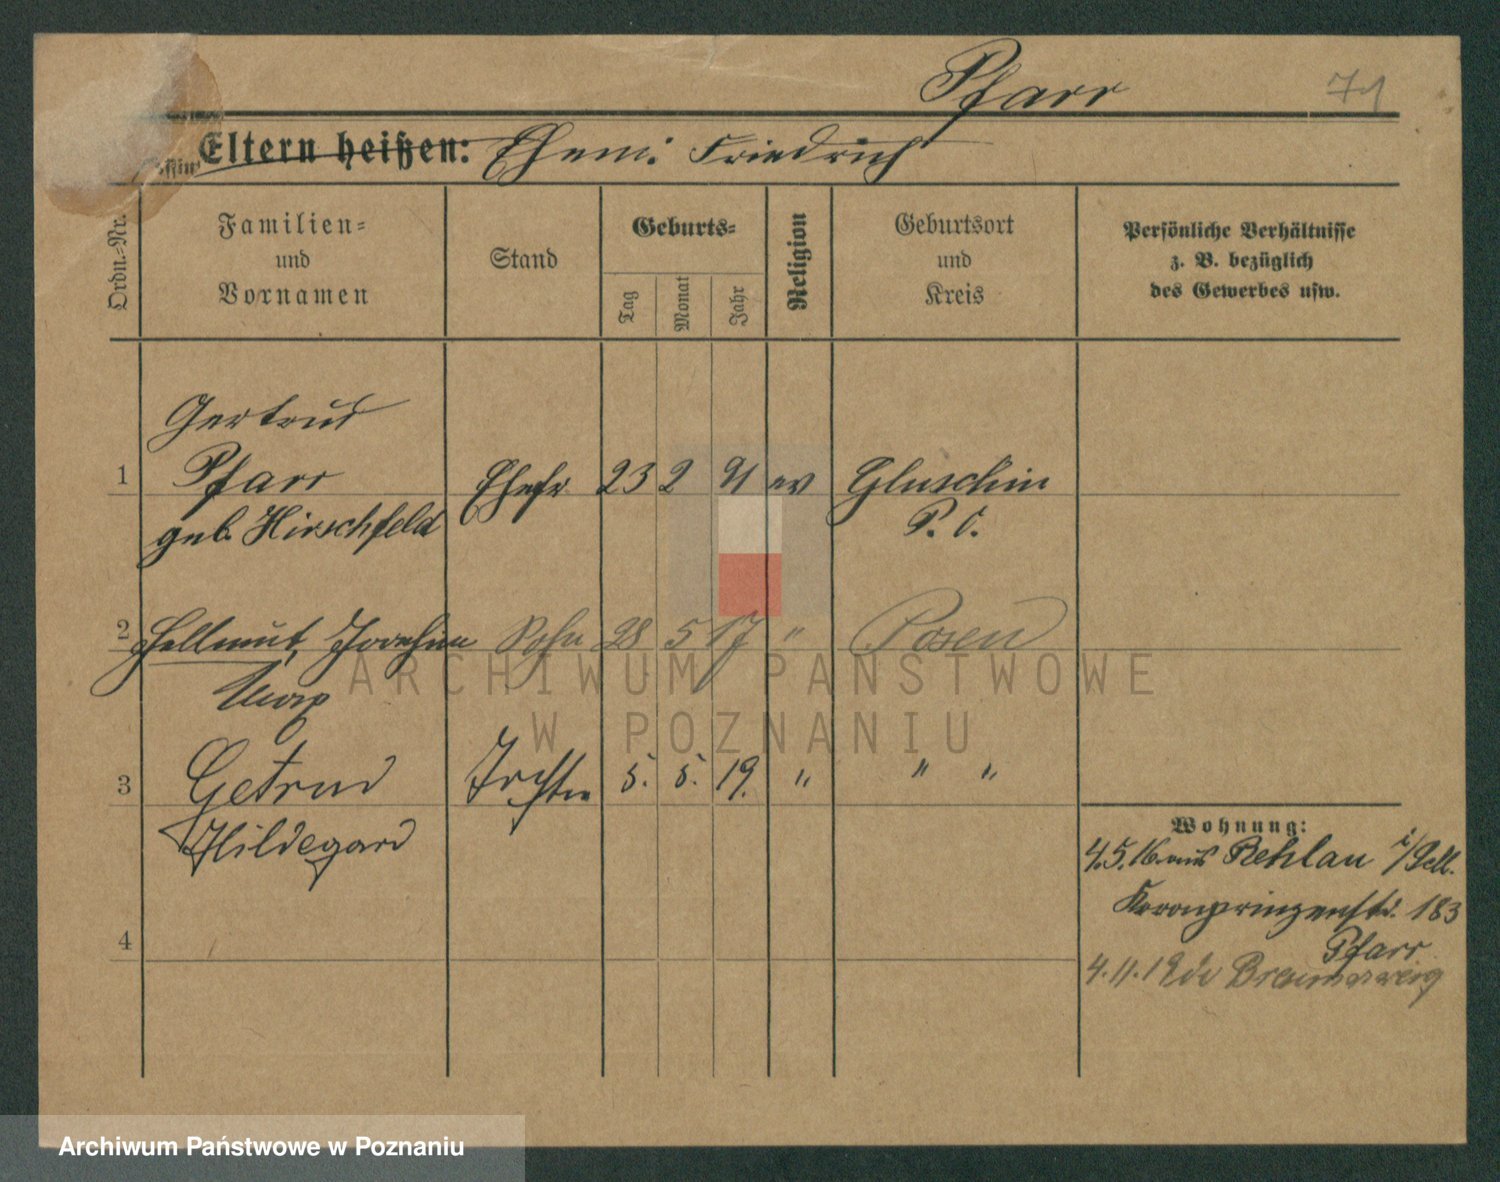 Pfarr 71
Eltern heißen: Ehem: Friedrich
Ordn.-Nr.
Familien-
und
Vornamen
Stand
Geburts-
Tag
Monat
Jahr
Religion
Geburtsort
und
Kreis
Persönliche Verhältnisse
z. B. bezüglich
des Gewerbes usw.
Gertrud
1 Pfarr Ehefr 23 2 91 ev Gluschin
geb. Hirschfeld P. O.
2 Hellmut, Joachim Sohn 28 5 17 " Posen
Max
3 Getrud Tochter 5. 5. 19. " " "
Hildegard
4
Wohnung:
4.5.16 aus Rehlau
Kronprinzenstr. 183
Pfarr
4.11.19
ARCHIWUM PAŃSTWOWE
W POZNANIU
Archiwum Państwowe w Poznaniu